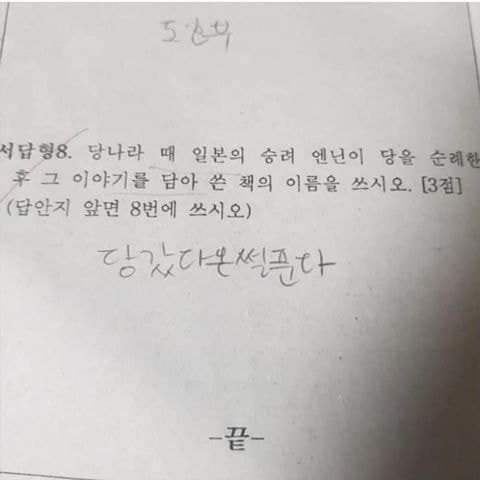 도간부
서답형8. 당나라 때 일본의 승려 엔닌이 당을 순례한
후 그 이야기를 담아 쓴 책의 이름을 쓰시오. [3점]
(답안지 앞면 8번에 쓰시오)
당갔다온썰푼다
-끝-